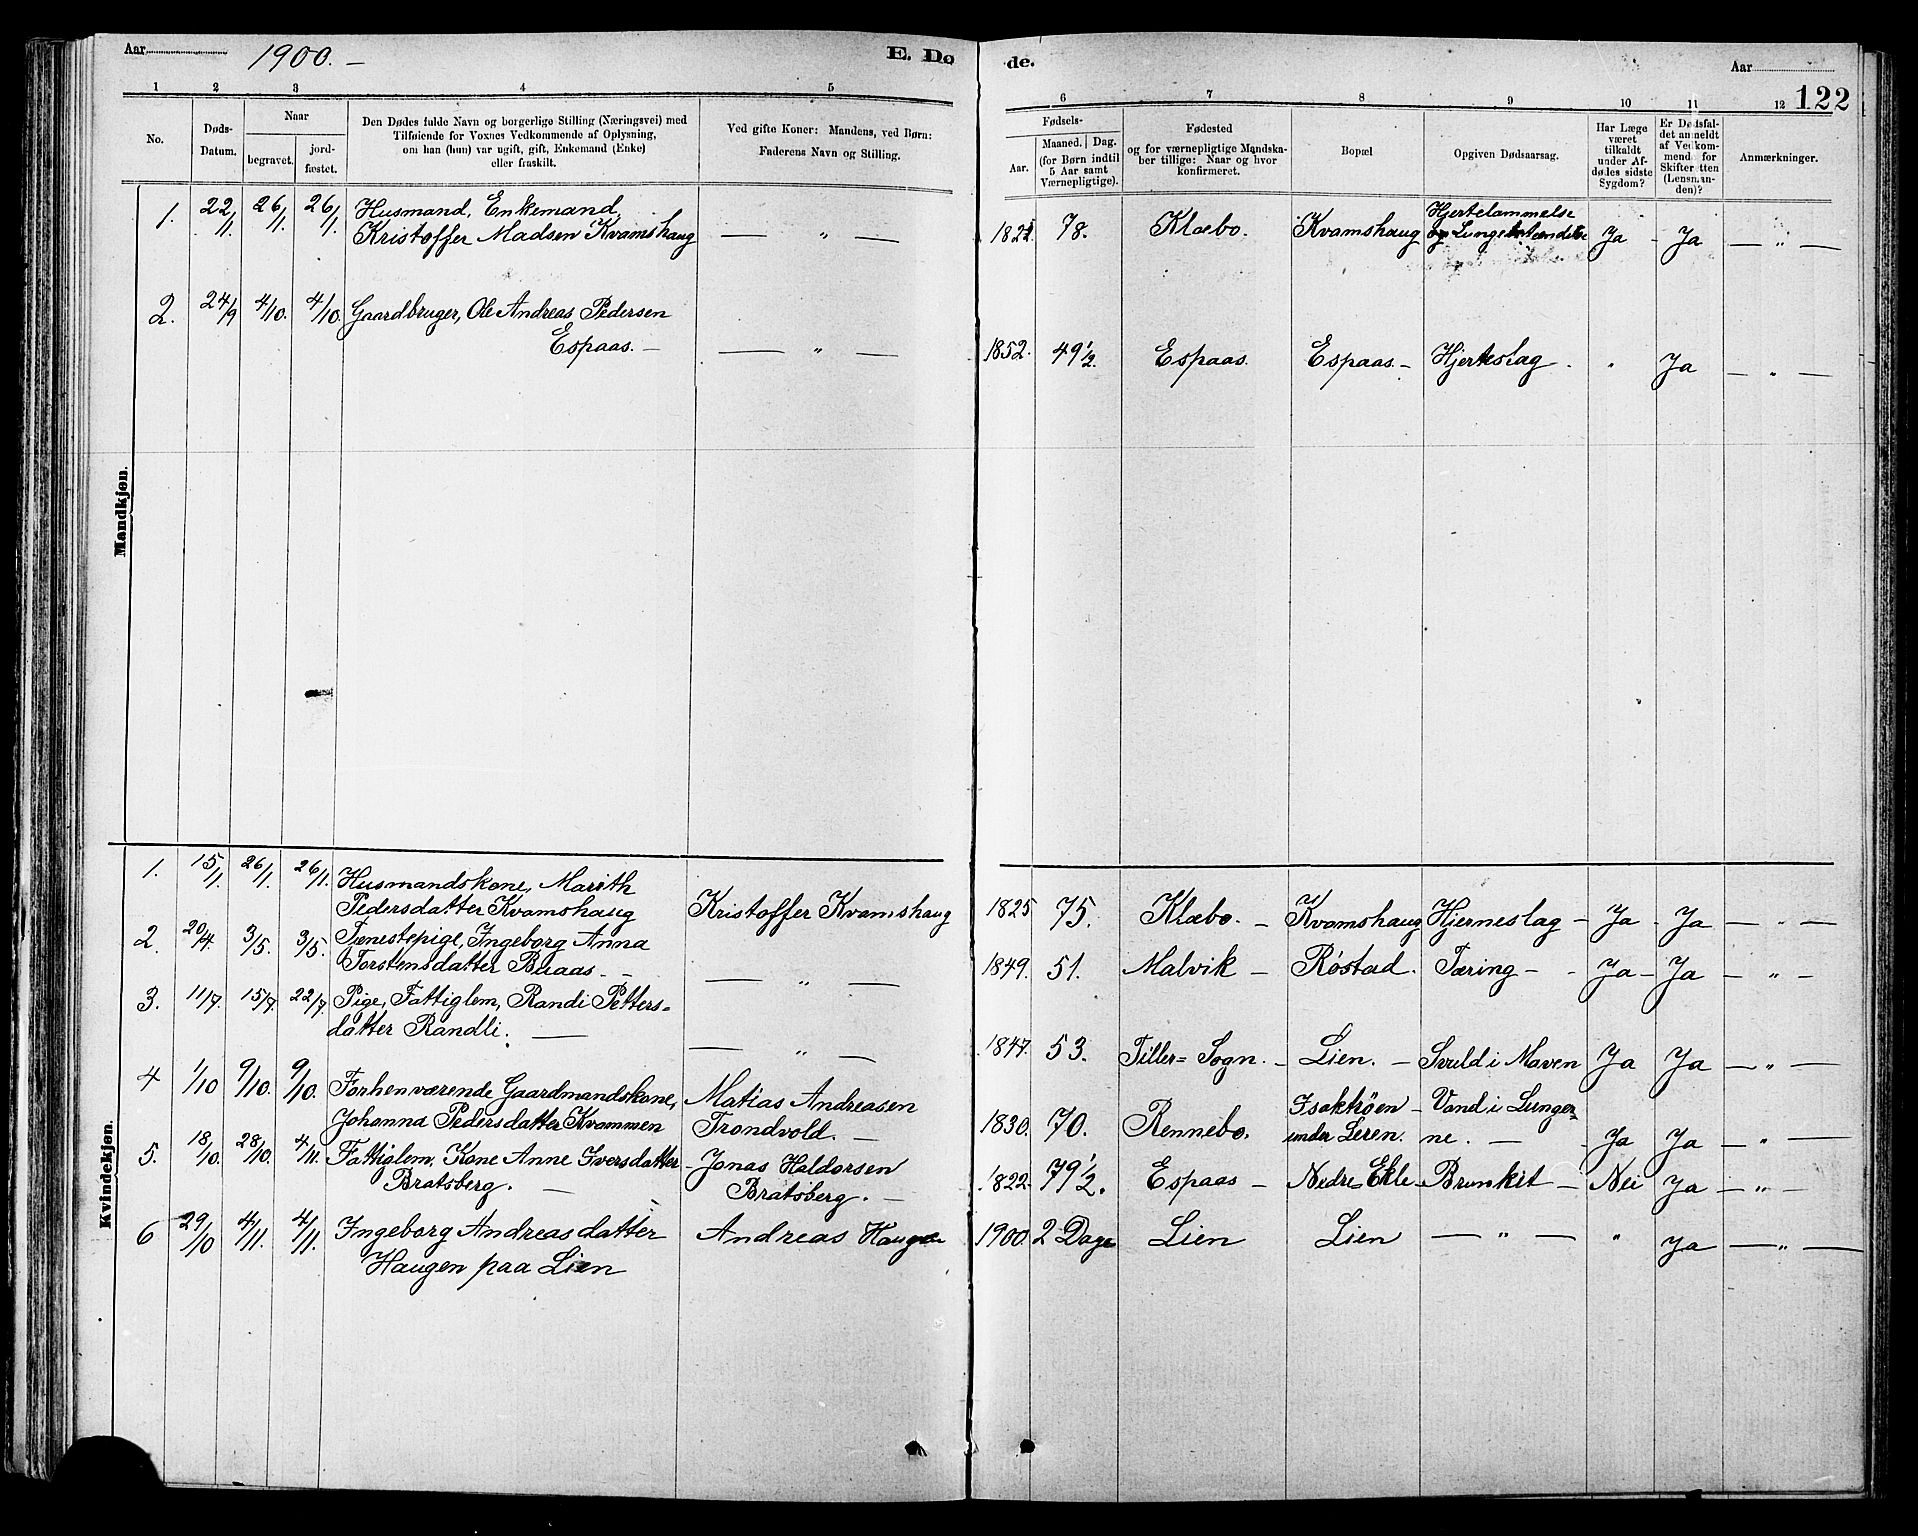 Aar 1900. —
E. Dø
de.
Aar
122
1 2 3 4 5
6 7 8 9 10 11 12
No.
Døds-
Datum.
Naar
begravet.
jord-
fæstet.
Den Dødes fulde Navn og borgerlige Stilling (Næringsvei) med
Tilføiende for Voxnes Vedkommende af Oplysning,
om han (hun) var ugift, gift, Enkemand (Enke)
eller fraskilt.
Ved gifte Koner: Mandens, ved Børn:
Faderens Navn og Stilling.
Fødsels-
Aar.
Maaned. Dag.
(for Børn indtil
5 Aar samt
Værnepligtige).
Fødested
og for værnepligtige Mandska-
ber tillige: Naar og hvor
konfirmeret.
Bopæl
Opgiven Dødsaarsag.
Har Læge
været
tilkaldt
under Af-
dødes sidste
Sygdom?
Er Dødsfal-
det anmeldt
af Vedkom-
mende for
Skifteretten
(Lensman-
den)?
Anmærkninger.
Mandkjøn.
1. 22/1 26/1 26/1 Husmand, Enkemand,
Kristoffer Madsen Kvamshaug — „ — 78. Klæbo. Kvamshaug Hjertelammelse
og Lungebetændelse Ja - Ja — „ —
2. 24/9 4/10. 4/10. Gaardbruger, Ole Andreas Pedersen
Espaas. — — „ — 1852. 49 1/2. Espaas. Espaas. — Hjerteslag . „ Ja — „ —
Kvindekjøn.
1. 15/1 26/1. 26/1. Husmandskone, Marith
Pedersdatter Kvamshaug Kristoffer Kvamshaug 1825 75. Klæbo. — Kvamshaug Hjerneslag - Ja - Ja — „ —
2. 20/4. 3/5. 3/5. Tænestepige, Ingeborg Anna
Torstensdatter Braas. — — „ — 1849. 51. Malvik — Røstad. Tæring — - Ja - Ja — „ —
3. 11/7. 15/7. 22/7. Pige, Fattiglem, Randi Petters=
datter Randli. — — „ — 1847. 53. Tiller= Sogn. — Lien. — Svuld i Maven Ja Ja — „ —
4 1/10 9/10. 9/10. Forhenværende Gaardmandskone, Matias Andreasen
Johanna Pedersdatter Kvammen Trondvold. — 1830. 70. Rennebo. Isaktrøen — Vand i Lunger=
under Leren. ne. — - Ja Ja — „ —
5. 18/10. 28/10. 4/11. Fattiglem, Kone Anne Iversdatter - Jonas Haldorsen
Bratsberg. — Bratsberg. — 1822. 79 1/2. Espaas — Nedre= Ekle - Brunkit — Nei Ja — „ —
6 29/10 4/11. 4/11. Ingeborg Andreasdatter Andreas Haugen 1900. 2 Dage Lien Lien — „ — „ Ja — „ —
Haugen paa Lien